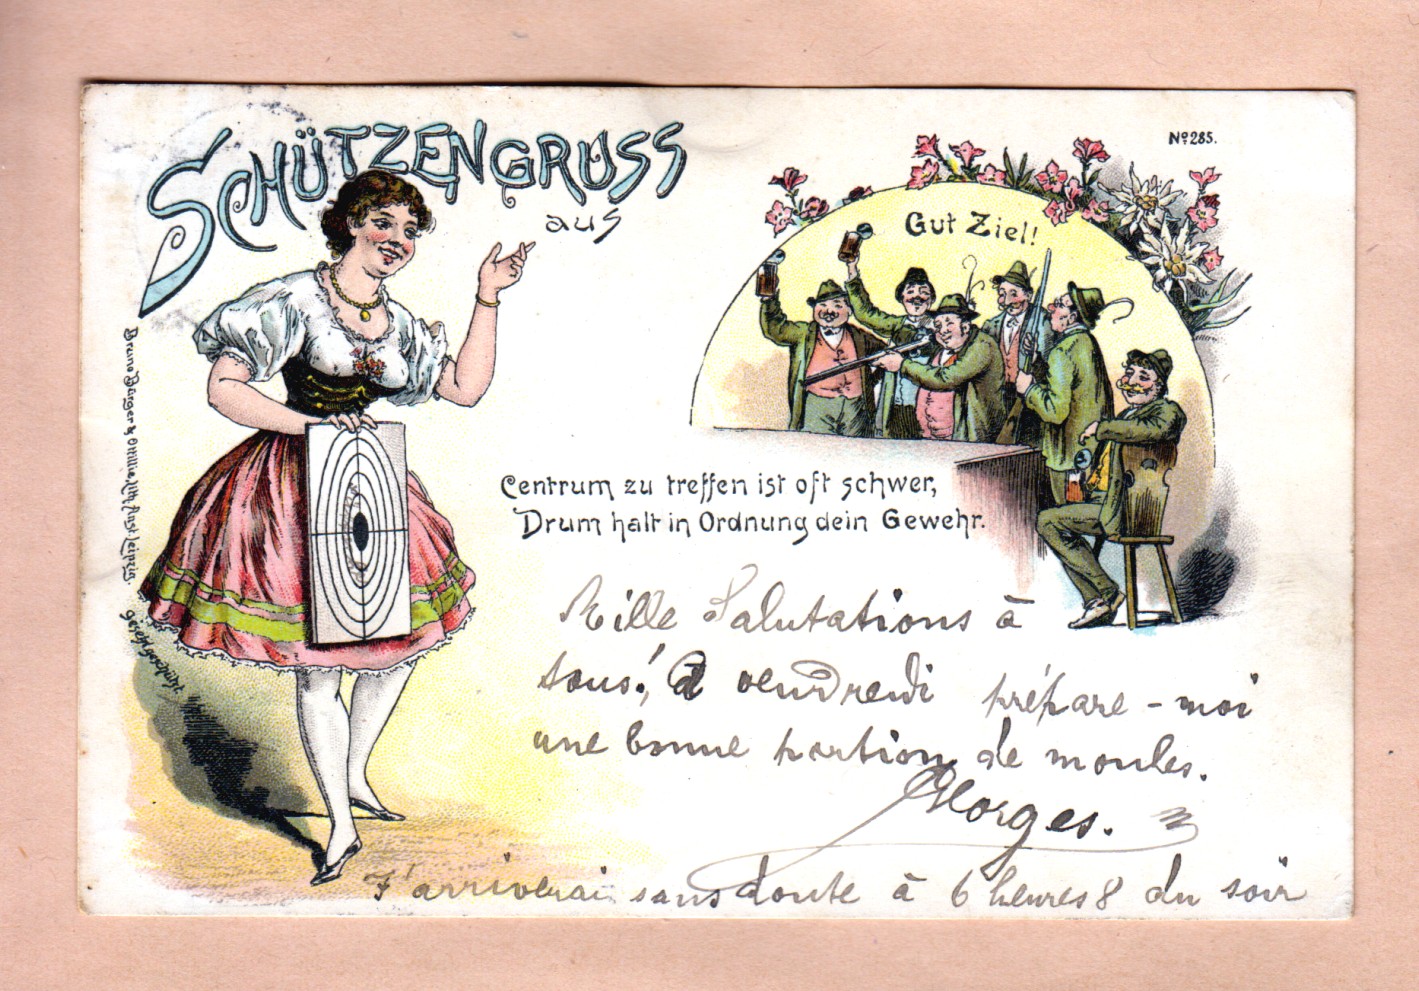 SCHÜTZENGRUSS
aus
Nº 285.
Gut Ziel!
Centrum zu treffen ist oft schwer,
Drum halt in Ordnung dein Gewehr.
Mille Salutations à
tous! à vendredi prépare-moi
une bonne portion de moules.
Georges.
J'arriverai sans doute à 6 heures 8 du soir
Bruno Bürger & Ottillie, Lith. Anst. Leipzig.
gesetzl. geschützt